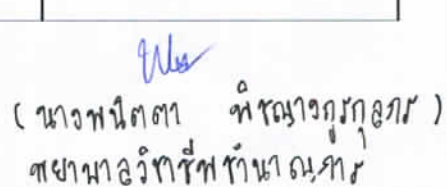 ( นางพนิตตา พิชญางกูรกุลภร )
พยาบาลวิชาชีพชำนาญการ